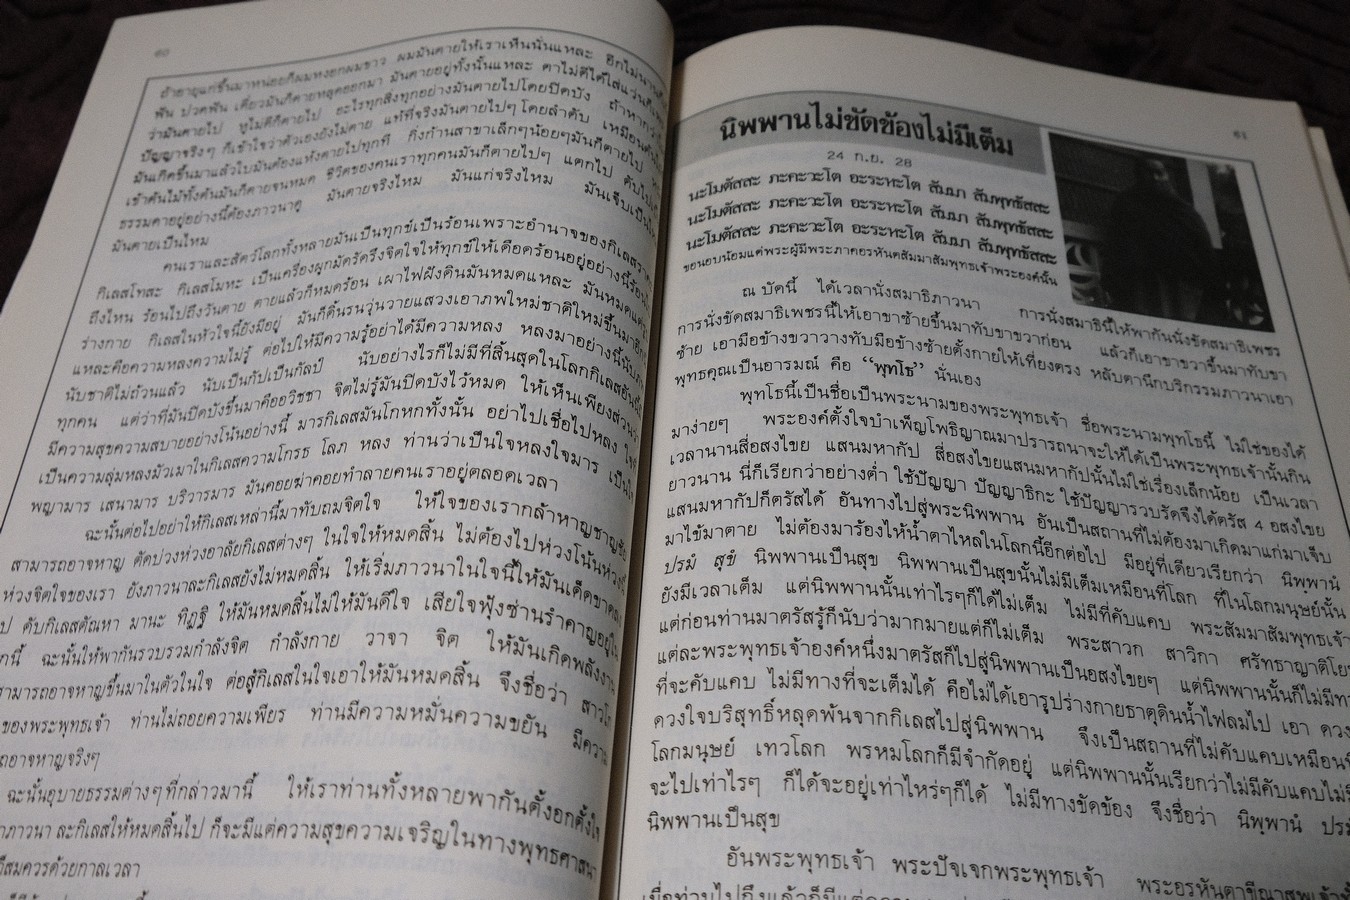 60
ถ้าอายุแก่ขึ้นมาหน่อยก็ผมหงอกผมขาว ผมมันตายให้เราเห็นนั่นแหละ อีกไม่นาน
ฟัน ปวดฟัน เดี๋ยวมันก็ตายหลุดออกมา มันตายอยู่ทั้งนั้นแหละ ตาไม่ดีได้ใส่แว่น
ว่ามันตายไป หูไม่ดีก็ตายไป อะไรทุกสิ่งทุกอย่างมันตายไปโดยปิดบัง ถ้าหาก
ปัญญาจริงๆ ก็เข้าใจว่าตัวเองยังไม่ตาย แท้ที่จริงมันตายไปๆ โดยลำดับ เหมือนต้นไม้
มันเกิดขึ้นมาแล้วใบมันต้องแห้งตายไปทุกที กิ่งก้านสาขาเล็กๆน้อยๆมันก็ตายไป
เข้าต้นไม้ทั้งต้นมันก็ตายจนหมด ชีวิตของคนเราทุกคนมันก็ตายไปๆ แตกไป ดับไป
ธรรมดาอยู่อย่างนี้ต้องภาวนาดู มันตายจริงไหม มันแก่จริงไหม มันเจ็บเป็น
มันตายเป็นไหม
คนเราและสัตว์โลกทั้งหลายมันเป็นทุกข์เป็นร้อนเพราะอำนาจของกิเลส
กิเลสโทสะ กิเลสโมหะ เป็นเครื่องผูกมัดรัดรึงจิตใจให้ทุกข์ให้เดือดร้อนอยู่อย่างนี้
ถึงไหน ร้อนไปถึงวันตาย ตายแล้วก็หมดร้อน เผาไฟฝังดินมันหมดแหละ มันหมดแต่
ร่างกาย กิเลสในหัวใจนี้ยังมีอยู่ มันก็ดิ้นรนวุ่นวายแสวงเอาภพใหม่ชาติใหม่ขึ้นมา
แหละคือความหลงความไม่รู้ ต่อไปให้มีความรู้อย่าได้มีความหลง หลงมาอย่างนี้
นับชาติไม่ถ้วนแล้ว นับเป็นกัปเป็นกัลป์ นับอย่างไรก็ไม่มีที่สิ้นสุดในโลกกิเลส
ทุกคน แต่ว่าที่มันปิดบังขึ้นมาคืออวิชชา จิตไม่รู้มันปิดบังไว้หมด ให้เห็นเพียง
มีความสุขความสบายอย่างโน้นอย่างนี้ มารกิเลสมันโกหกทั้งนั้น อย่าไปเชื่อไปหลง
เป็นความลุ่มหลงมัวเมาในกิเลสความโกรธ โลภ หลง ท่านว่าเป็นใจหลงใจมาร
พญามาร เสนามาร บริวารมาร มันคอยฆ่าคอยทำลายคนเราอยู่ตลอดเวลา
ฉะนั้นต่อไปอย่าให้กิเลสเหล่านี้มาทับถมจิตใจ ให้ใจของเรากล้าหาญ
สามารถอาจหาญ ตัดบ่วงห่วงอาลัยกิเลสต่างๆ ในใจให้หมดสิ้น ไม่ต้องไปห่วงโน้น
ห่วงจิตใจของเรา ยังภาวนาละกิเลสยังไม่หมดสิ้น ให้เริ่มภาวนาในใจนี้ให้มันเด็ดขาด
ป ดับกิเลสตัณหา มานะ ทิฏฐิ ให้มันหมดสิ้นไม่ให้มันดีใจ เสียใจฟุ้งซ่านรำคาญอยู่ใน
กนี้ ฉะนั้นให้พากันรวบรวมกำลังจิต กำลังกาย วาจา จิต ให้มันเกิดพลังงาน
สามารถอาจหาญขึ้นมาในตัวในใจ ต่อสู้กิเลสในใจเอาให้มันหมดสิ้น จึงชื่อว่า
ของพระพุทธเจ้า ท่านไม่ถอยความเพียร ท่านมีความหมั่นความขยัน มีความ
ถอาจหาญจริงๆ
ฉะนั้นอุบายธรรมต่างๆ ที่กล่าวมานี้ ให้เราท่านทั้งหลายพากันตั้งอกตั้งใจ
ภาวนา ละกิเลสให้หมดสิ้นไป ก็จะมีแต่ความสุขความเจริญในทางพุทธศาสนา
สมควรด้วยกาลเวลา
61
นิพพานไม่ขัดข้องไม่มีเต็ม
24 ก.ย. 28
นะโมตัสสะ ภะคะวะโต อะระหะโต สัมมา สัมพุทธัสสะ
นะโมตัสสะ ภะคะวะโต อะระหะโต สัมมา สัมพุทธัสสะ
นะโมตัสสะ ภะคะวะโต อะระหะโต สัมมา สัมพุทธัสสะ
ขอนอบน้อมแด่พระผู้มีพระภาคอรหันตสัมมาสัมพุทธเจ้าพระองค์นั้น
ณ บัดนี้ ได้เวลานั่งสมาธิภาวนา การนั่งสมาธินี้ให้พากันนั่งขัดสมาธิเพชร
การนั่งขัดสมาธิเพชรนี้ให้เอาขาซ้ายขึ้นมาทับขาขวาก่อน แล้วก็เอาขาขวาขึ้นมาทับขา
ซ้าย เอามือข้างขวาวางทับมือข้างซ้ายตั้งกายให้เที่ยงตรง หลับตานึกบริกรรมภาวนาเอา
พุทธคุณเป็นอารมณ์ คือ “พุทโธ” นั่นเอง
พุทโธนี้เป็นชื่อเป็นพระนามของพระพุทธเจ้า ชื่อพระนามพุทโธนี้ ไม่ใช่ของได้
มาง่ายๆ พระองค์ตั้งใจบำเพ็ญโพธิญาณมาปรารถนาจะให้ได้เป็นพระพุทธเจ้านั้นกิน
เวลานานสี่อสงไขย แสนมหากัป สี่อสงไขยแสนมหากัปนั้นไม่ใช่เรื่องเล็กน้อย เป็นเวลา
ยาวนาน นี่ก็เรียกว่าอย่างต่ำ ใช้ปัญญา ปัญญาธิกะ ใช้ปัญญารวบรัดจึงได้ตรัส 4 อสงไขย
แสนมหากัปก็ตรัสได้ อันทางไปสู่พระนิพพาน อันเป็นสถานที่ไม่ต้องมาเกิดมาแก่มาเจ็บ
มาไข้มาตาย ไม่ต้องมาร้องไห้น้ำตาไหลในโลกนี้อีกต่อไป มีอยู่ที่เดียวเรียกว่า นิพฺพานํ
ปรมํ สุขํ นิพพานเป็นสุข นิพพานเป็นสุขนั้นไม่มีเต็มเหมือนที่โลก ที่ในโลกมนุษย์นั้น
ยังมีเวลาเต็ม แต่นิพพานนั้นเท่าไรๆก็ได้ไม่เต็ม ไม่มีที่คับแคบ พระสัมมาสัมพุทธเจ้า
แต่ก่อนท่านมาตรัสรู้ก็นับว่ามากมายแต่ก็ไม่เต็ม พระสาวก สาวิกา ศรัทธาญาติโยม
แต่ละพระพุทธเจ้าองค์หนึ่งมาตรัสก็ไปสู่นิพพานเป็นอสงไขยๆ แต่นิพพานนั้นก็ไม่มี
ที่จะคับแคบ ไม่มีทางที่จะเต็มได้ คือไม่ได้เอารูปร่างกายธาตุดินน้ำไฟลมไป เอา ดวง
ดวงใจบริสุทธิ์หลุดพ้นจากกิเลสไปสู่นิพพาน จึงเป็นสถานที่ไม่คับแคบเหมือน
โลกมนุษย์ เทวโลก พรหมโลกก็มีจำกัดอยู่ แต่นิพพานนั้นเรียกว่าไม่มีคับแคบไม่มี
จะไปเท่าไรๆ ก็ได้จะอยู่เท่าไหร่ๆก็ได้ ไม่มีทางขัดข้อง จึงชื่อว่า นิพฺพานํ ปรมํ
นิพพานเป็นสุข
อันพระพุทธเจ้า พระปัจเจกพระพุทธเจ้า พระอรหันตาขีณาสพเจ้า